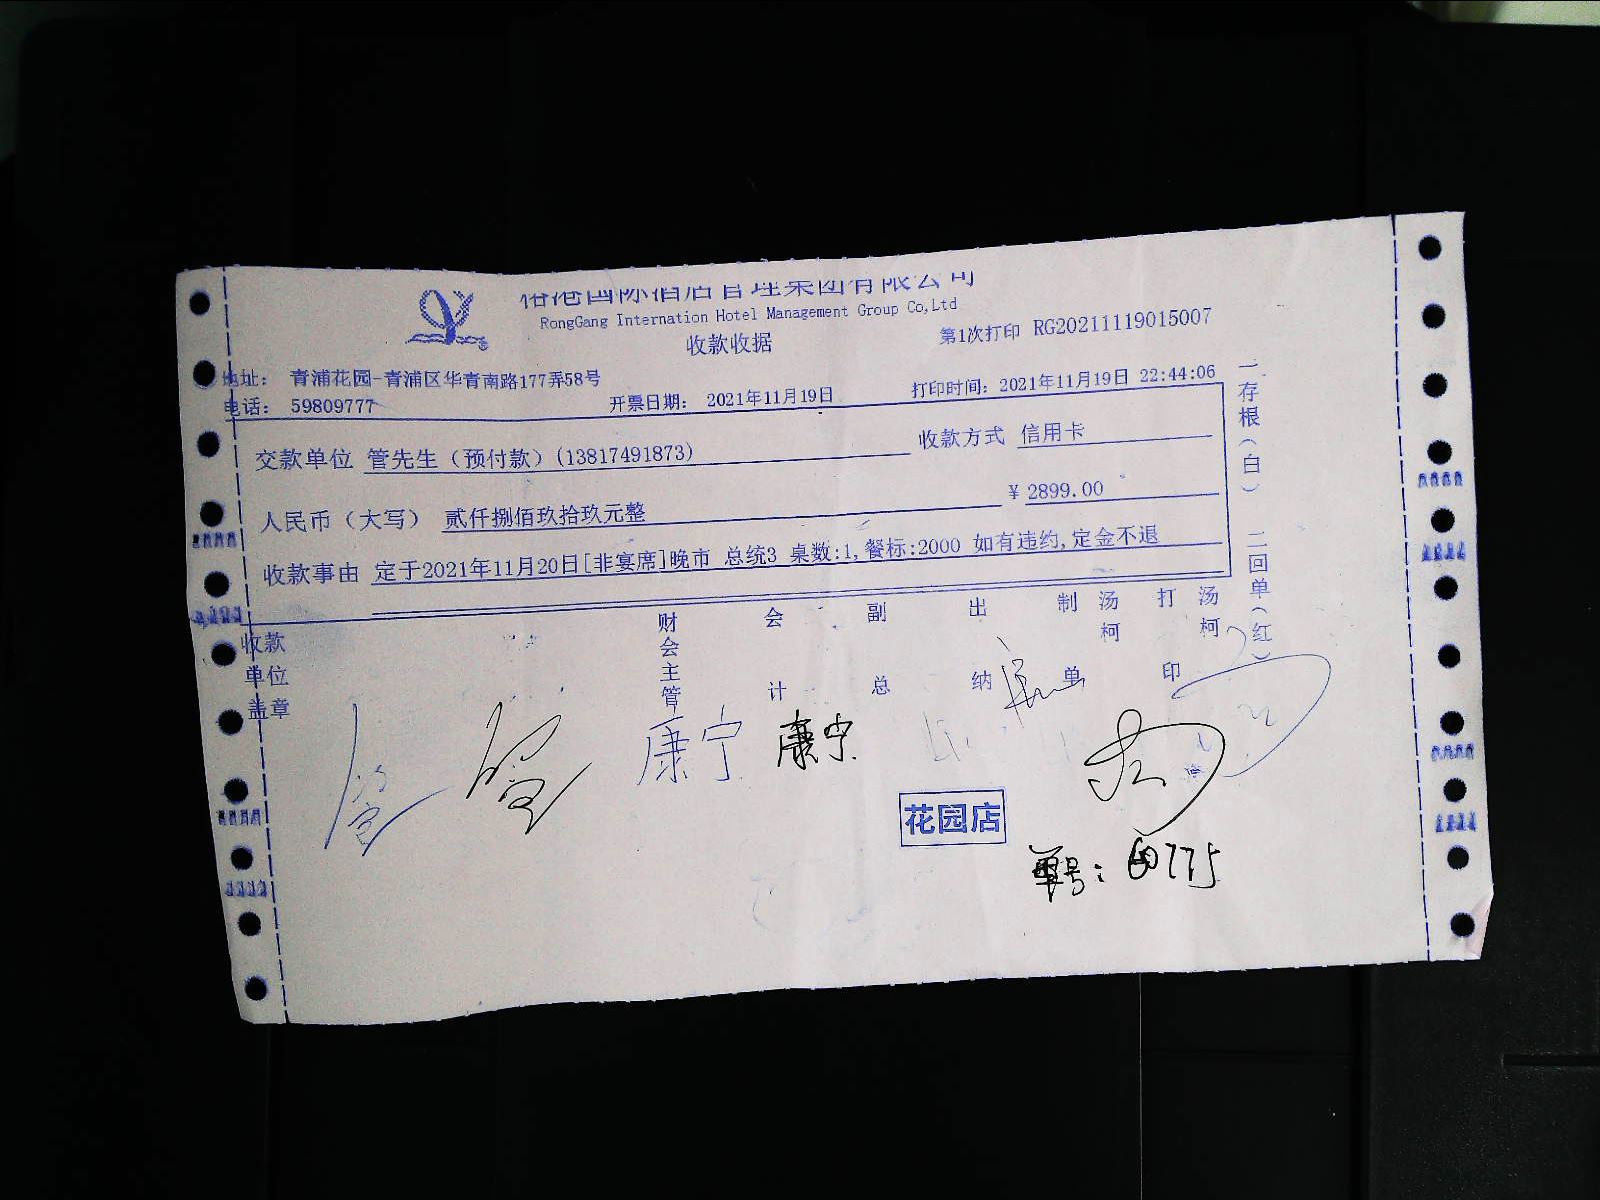 国际酒店管理集团有限公司
RongGang Internation Hotel Management Group Co,Ltd
收款收据
第1次打印 RG20211119015007
地址： 青浦花园-青浦区华青南路177弄58号
电话： 59809777
开票日期： 2021年11月19日
打印时间：2021年11月19日 22:44:06
交款单位 管先生（预付款）(13817491873)
收款方式 信用卡
人民币（大写） 贰仟捌佰玖拾玖元整
¥ 2899.00
收款事由 定于2021年11月20日[非宴席]晚市 总统3 桌数:1,餐标:2000 如有违约,定金不退
一存根（白） 二回单（红）
收款单位盖章
财会主管
会计
副总
出纳
制单
汤柯
打印
汤柯
康宁 康宁
花园店
单号：60775